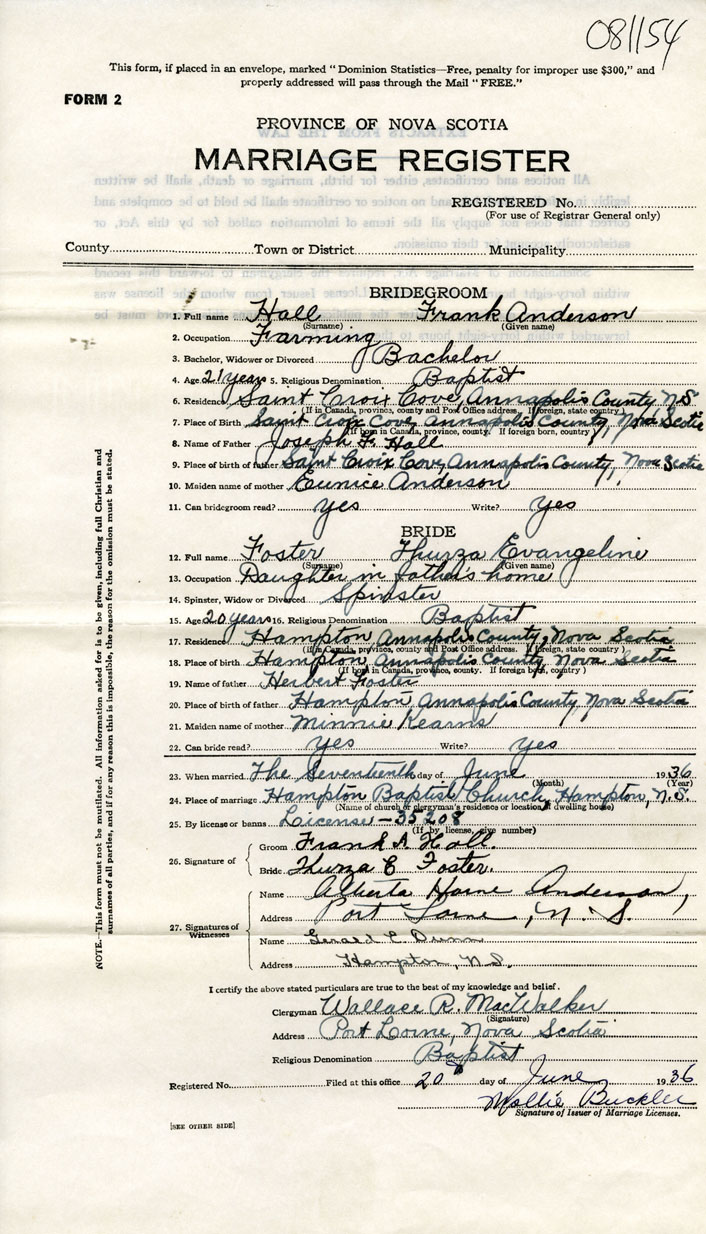 081154
This form, if placed in an envelope, marked "Dominion Statistics—Free, penalty for improper use $300," and
properly addressed will pass through the Mail "FREE."
FORM 2
PROVINCE OF NOVA SCOTIA
MARRIAGE REGISTER
REGISTERED No.
(For use of Registrar General only)
County Town or District Municipality
BRIDEGROOM
1. Full name Hall Frank Anderson
(Surname) (Given name)
2. Occupation Farming
3. Bachelor, Widower or Divorced Bachelor
4. Age 21 years 5. Religious Denomination Baptist
6. Residence Saint Croix Cove, Annapolis County, N.S.
(If in Canada, province, county and Post Office address. If foreign, state country)
7. Place of Birth Saint Croix Cove, Annapolis County, Nova Scotia
(If born in Canada, province, county. If foreign born, country)
8. Name of Father Joseph F. Hall
9. Place of birth of father Saint Croix Cove, Annapolis County, Nova Scotia
10. Maiden name of mother Eunice Anderson
11. Can bridegroom read? yes Write? yes
BRIDE
12. Full name Foster Thurza Evangeline
(Surname) (Given name)
13. Occupation Daughter in father's home
14. Spinster, Widow or Divorced Spinster
15. Age 20 years 16. Religious Denomination Baptist
17. Residence Hampton Annapolis County, Nova Scotia
(If in Canada, province, county and Post Office address. If foreign, state country)
18. Place of birth Hampton, Annapolis County, Nova Scotia
(If born in Canada, province, county. If foreign born, country)
19. Name of father Herbert Foster
20. Place of birth of father Hampton, Annapolis County, Nova Scotia
21. Maiden name of mother Minnie Kearns
22. Can bride read? yes Write? yes
23. When married The Seventeenth day of June 1936
(Month) (Year)
24. Place of marriage Hampton Baptist Church, Hampton, N.S.
(Name of church or clergyman's residence or location of dwelling house)
25. By license or banns License - 35208
(If by license, give number)
26. Signature of
Groom Frank A. Hall.
Bride Thurza E Foster.
27. Signatures of Witnesses
Name Alberta Anderson,
Address Port Lorne, N. S.
Name Gerald C Dunn
Address Hampton, N.S.
I certify the above stated particulars are true to the best of my knowledge and belief.
Clergyman Wallace R. MacWalker
(Signature)
Address Port Lorne, Nova Scotia
Religious Denomination Baptist
Registered No. Filed at this office 20th day of June 1936
Mollie Buckler
Signature of Issuer of Marriage Licenses.
[SEE OTHER SIDE]
NOTE.—This form must not be mutilated. All information asked for is to be given, including full Christian and
surnames of all parties, and if for any reason this is impossible, the reason for the omission must be stated.